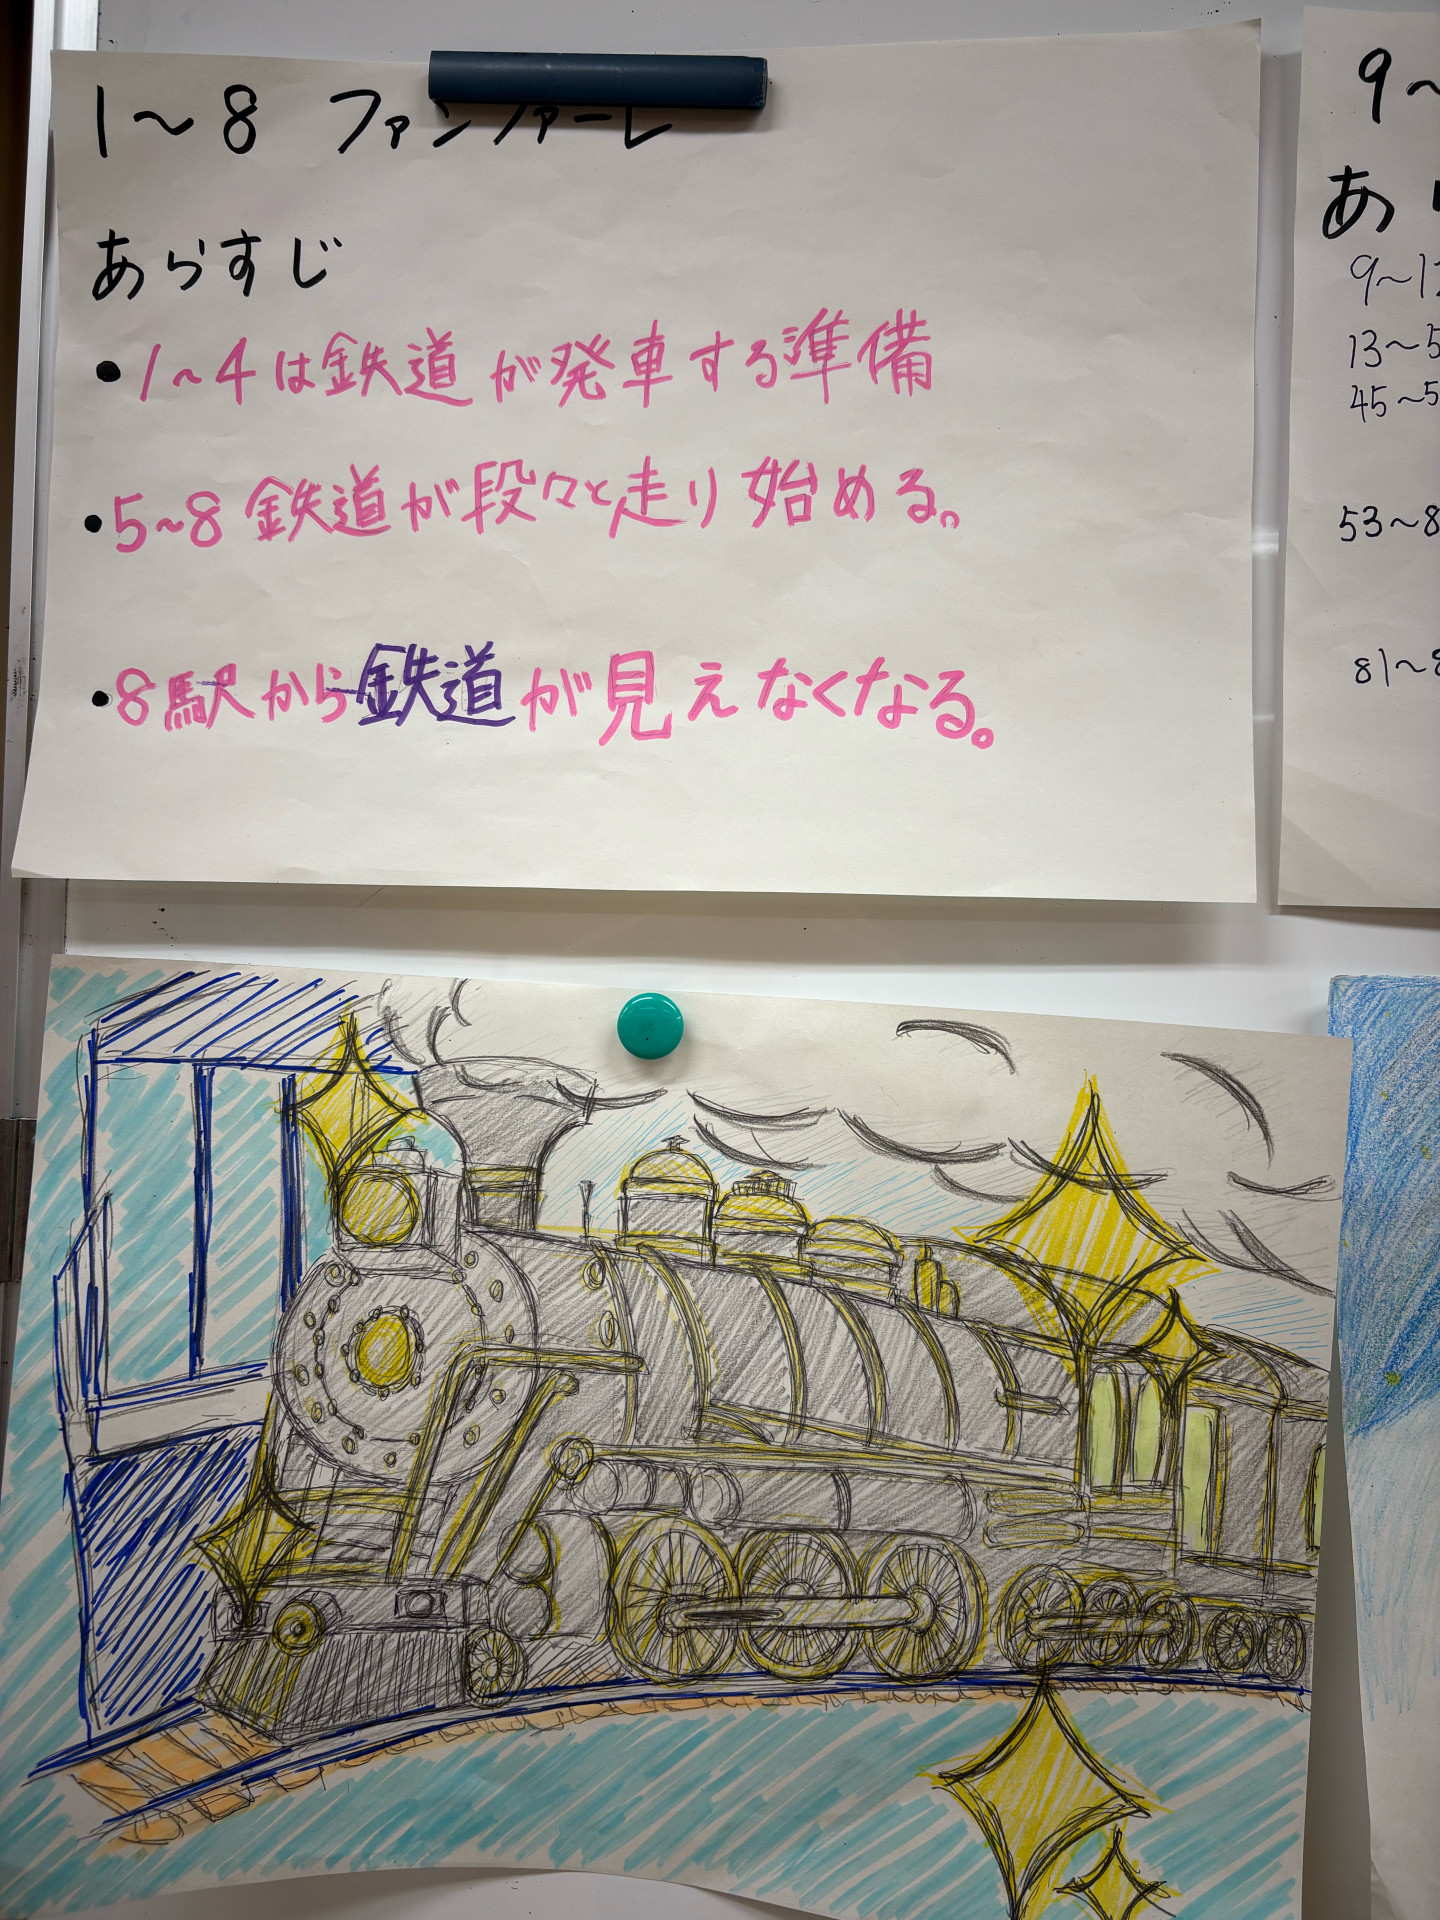 1〜8 ファンファーレ
あらすじ
・1〜4は鉄道が発車する準備
・5〜8鉄道が段々と走り始める。
・8駅から鉄道が見えなくなる。
9〜
あ
9〜1
13〜5
45〜5
53〜8
81〜8